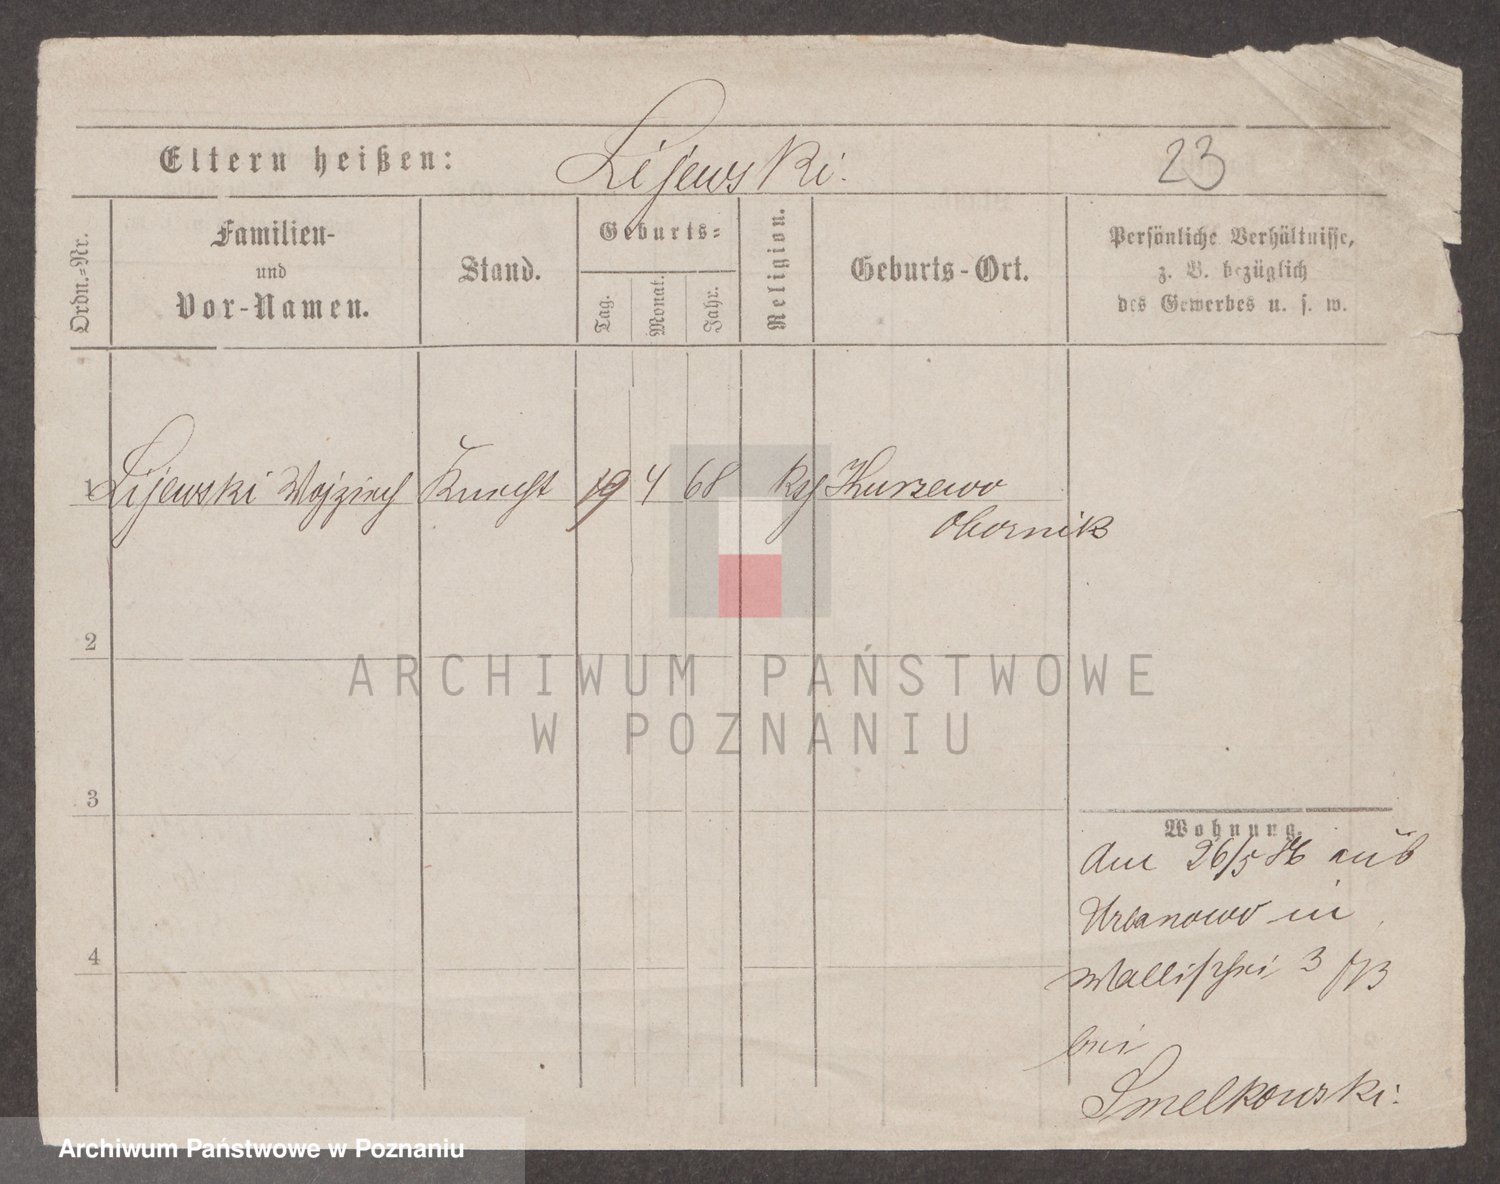 Eltern heißen: Lijewski. 23
Ordn.-Nr.
Familien-
und
Vor-Namen.
Stand.
Geburts-
Tag.
Monat.
Jahr.
Religion.
Geburts-Ort.
Persönliche Verhältnisse,
z. B. bezüglich
des Gewerbes u. s. w.
1 Lijewski Wojziech Knecht 19 4 68
Obornik
2
ARCHIWUM PAŃSTWOWE
W POZNANIU
3
Wohnung.
Am 26/5 86 aus
Urbanowo in
Wallischei 3
4
bei
Smelkowski.
Archiwum Państwowe w Poznaniu